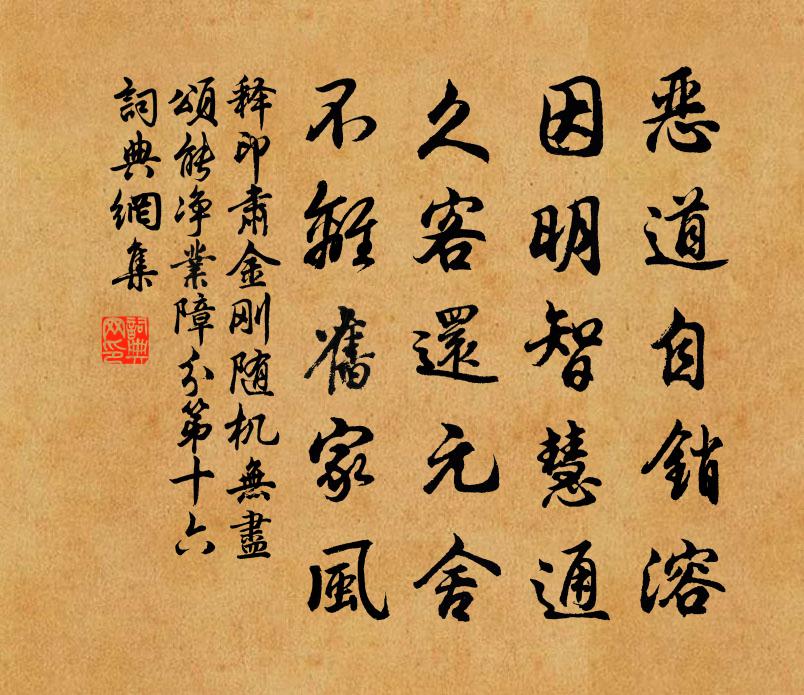 恶道自銷溶
因明智慧通
久客還元舍
不離舊家風
释印肅金刚随机無盡
頌能净業障分第十六
詞典網集
詞典網印